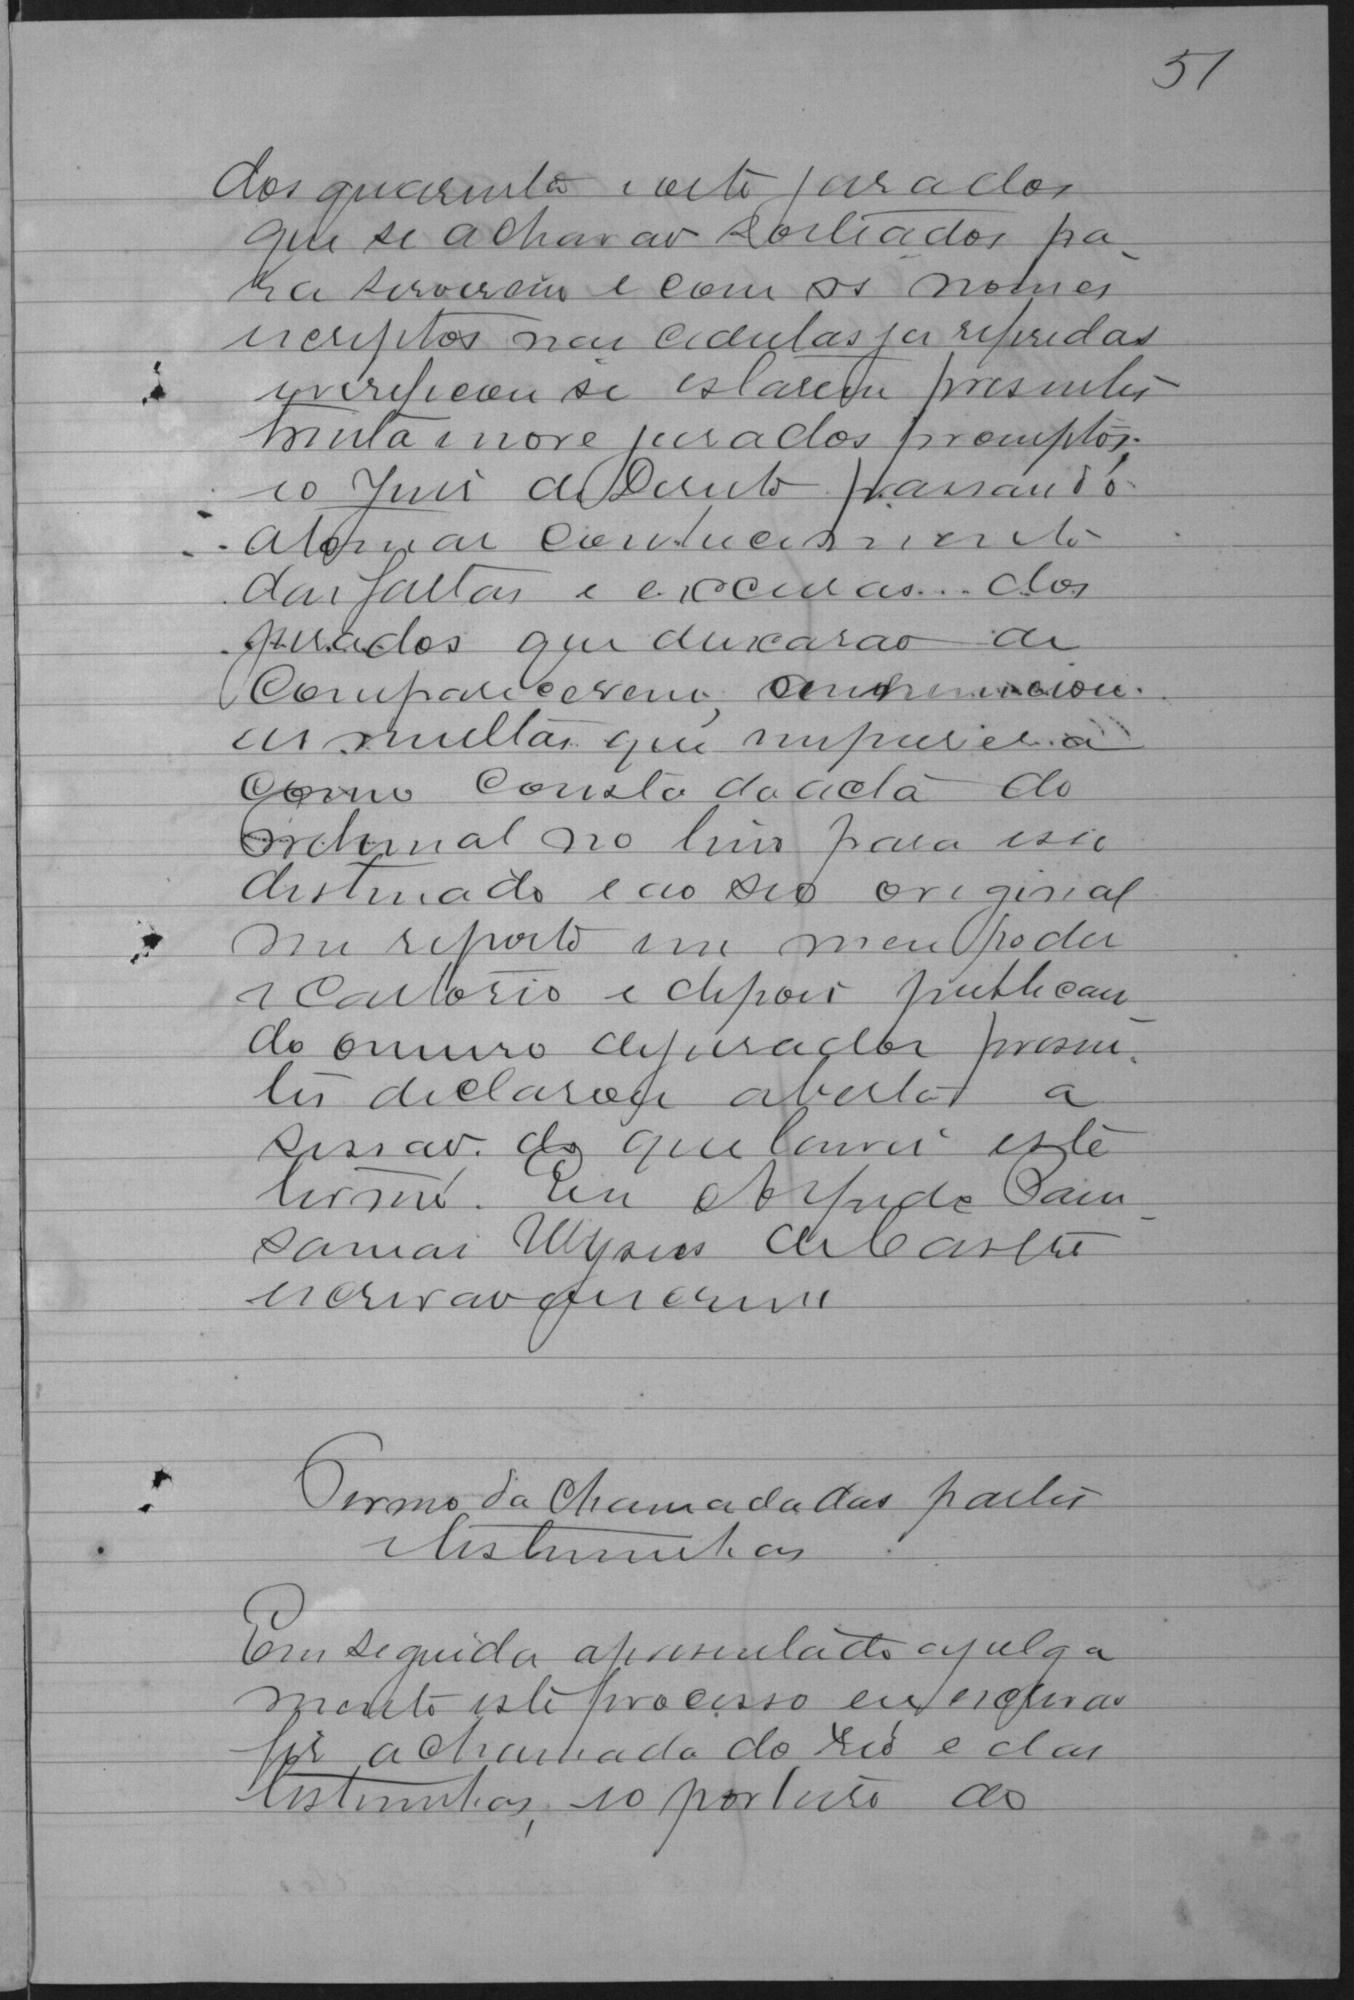 51
dos quarenta e oito jurados
que se achavao sorteados pa-
ra servirem e com os nomes
escriptos nas cedulas ja referidas
e verificou se estarem presentes
trinta e nove jurados promptos,
e o Juis de Direito passando
a tomar conhecimento
das faltas e excusas dos
jurados que deixarao de
comparecerem,
as multas que impusera
como consta da acta do
Tribunal no livro para esse
destinado e ao seo original
me reporto em meu poder
e cartorio e depois publican-
do o numero de jurados presen-
tes declarou aberta a
sessao. do que lavrei este
termo. Eu Alfredo
Ulysses de Castro
escrivao que escrevi
Termo da chamada das partes
e testemunhas
Em seguida apresentado a julga
mento este processo eu escrivao
fis a chamada do reo e das
testemunhas, e o porteiro do